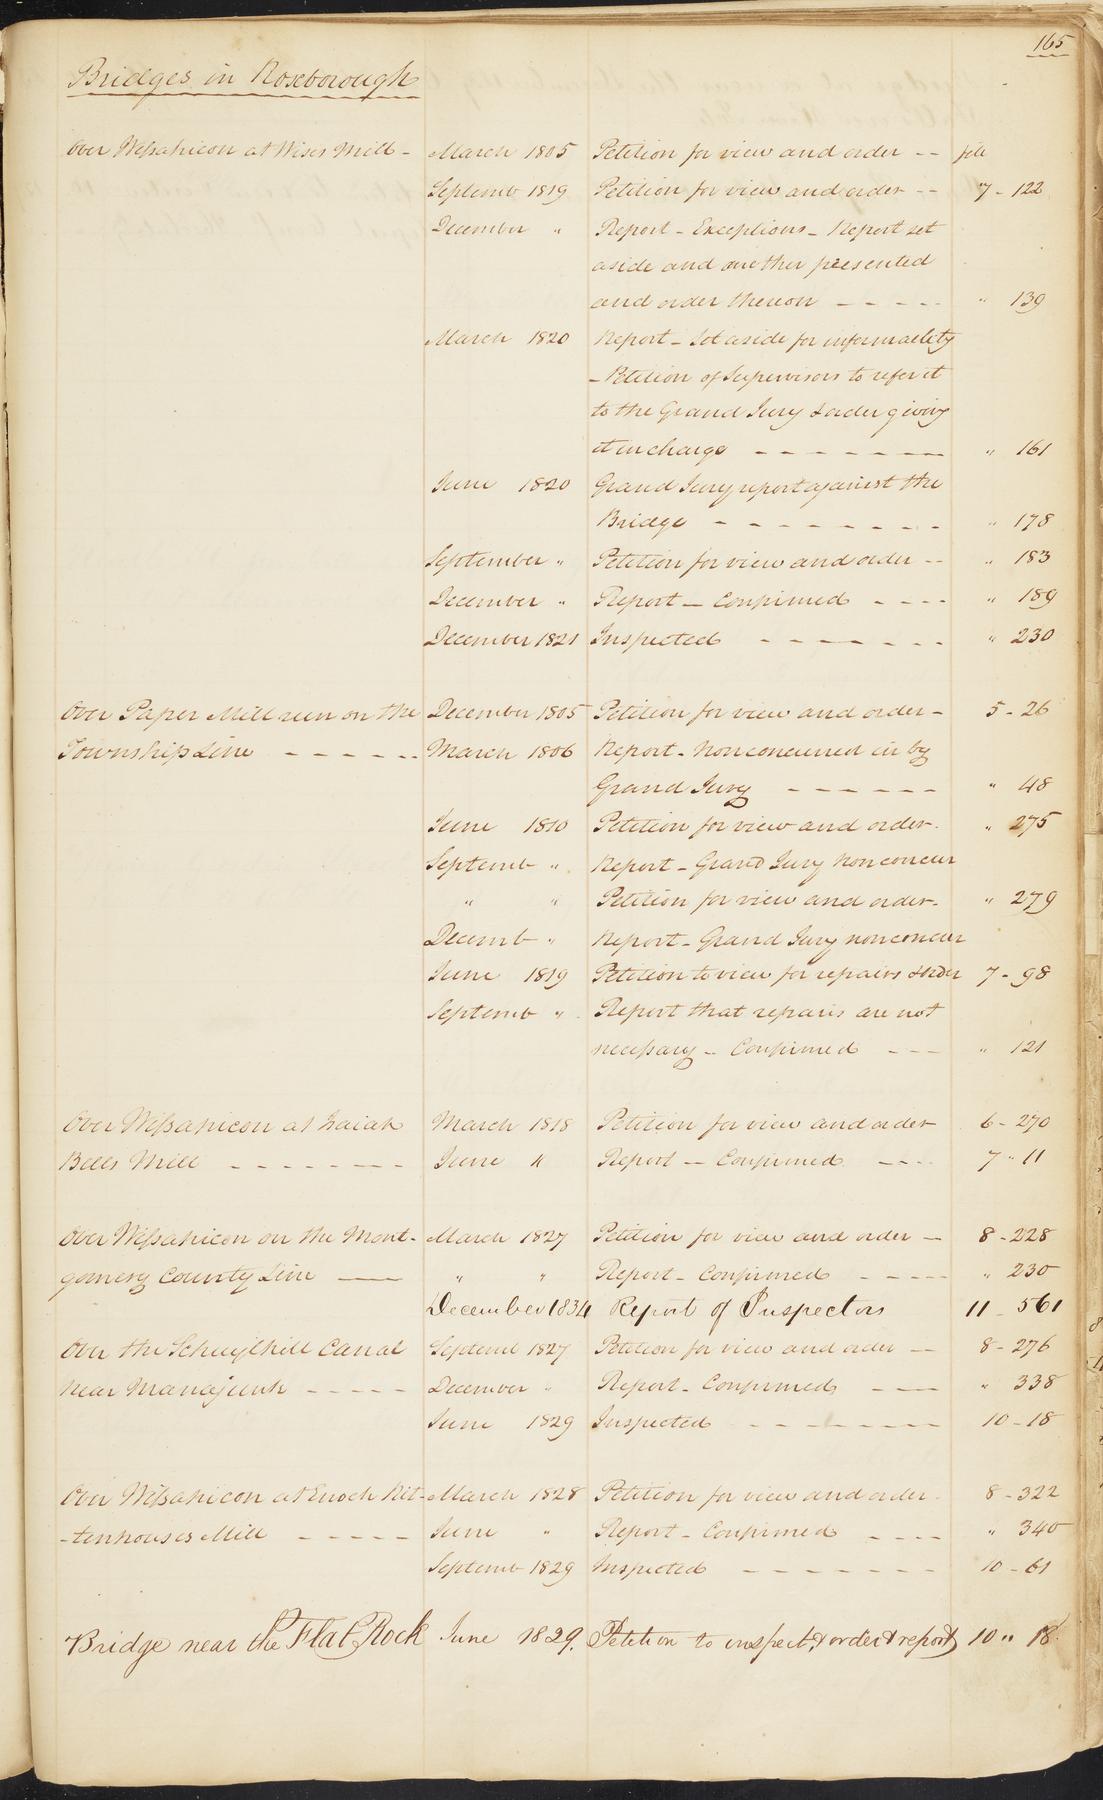 165
Bridges in Roxborough
Over Wissahicon at Wises Mill - March 1805 Petition for view and order -- file
Septemb 1819 Petition for view and order -- 7 - 122
December " Report - Exceptions - Report set
aside and another presented
and order thereon - - - - - " 139
March 1820 Report - Set aside for informality
- Petition of Supervisors to refer it
to the Grand Jury & order giving
it in charge - - - - - - - - " 161
June 1820 Grand Jury report against the
Bridge - - - - - - - - - " 178
September " Petition for view and order -- " 183
December " Report - Confirmed - - - - " 189
December 1821 Inspected - - - - - - - " 230
Over Paper Mill run on the December 1805 Petition for view and order - 5 - 26
Township Line - - - - - March 1806 Report - Nonconcurred in by
Grand Jury - - - - - - " 48
June 1810 Petition for view and order. " 275
Septemb " Report - Grand Jury Nonconcur
" " Petition for view and order. " 279
Decemb " Report - Grand Jury nonconcur
June 1819 Petition to view for repairs & order 7 - 98
Septemb " Report that repairs are not
necessary - Confirmed - - - " 121
Over Wissahicon at Isaiah March 1818 Petition for view and order 6 - 270
Bells Mill - - - - - - - June " Report - Confirmed - - - 7 " 11
Over Wissahicon on the Mont- March 1827 Petition for view and order - 8 - 228
gomery County Line - " " Report - Confirmed - - - - " 230
December 1834 Report of Inspectors 11 - 561
Over the Schuylkill Canal Septemb 1827 Petition for view and order -- 8 - 276
near Manajunk - - - - - December " Report - Confirmed - - - " 338
June 1829 Inspected - - - - - - - - 10 - 18
Over Wissahicon at Enoch Rit- March 1828 Petition for view and order. 8 - 322
-tenhouses Mill - - - - - June " Report - Confirmed - - - - " 340
Septemb 1829 Inspected - - - - - - - - 10 - 61
Bridge near the Flat Rock June 1829. Petition to inspect, & order & report 10 " 18.